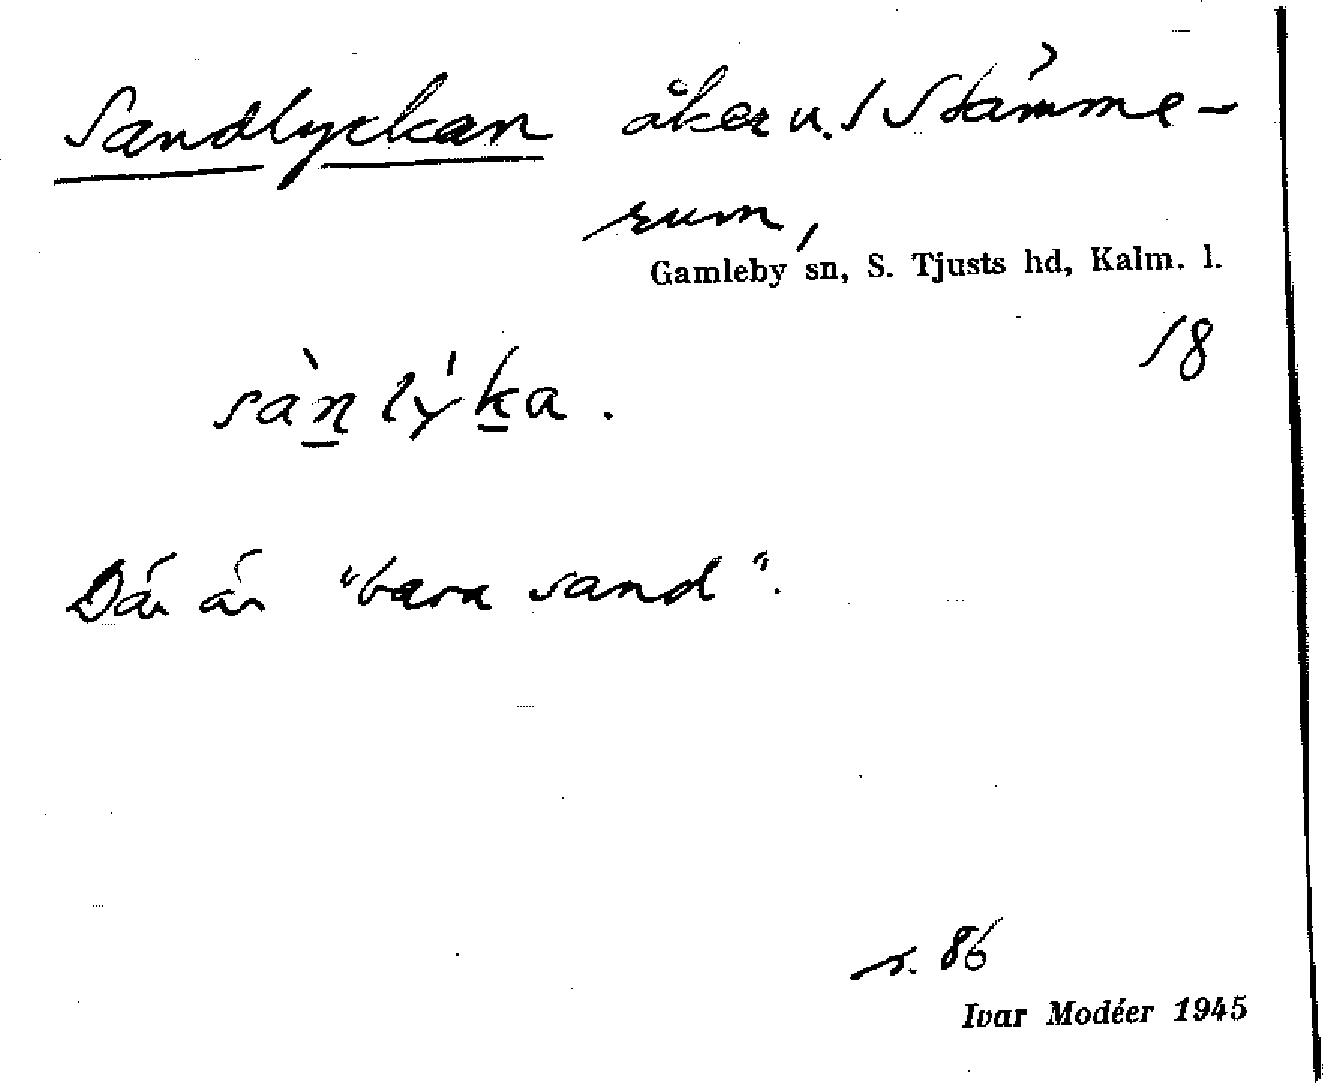 Sandlyckan åker u. / Stämme-
rum,
Gamleby sn, S. Tjusts hd, Kalm. l.
18
sàn̲ lýk̲a .
Där är "bara sand".
s. 86
Ivar Modéer 1945